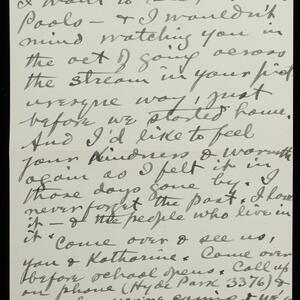 Pools — & I wouldn't
mind watching you in
the act of going across
the stream in your pict
uresque way, just
before we started home.
And I'd like to feel
your kindness & warmth
again as I felt it in
those days gone by. I
never forget the past. I love
it — & the people who live in
it.
Come over & see us,
you & Katharine. Come over
before school opens. Call up
on phone (Hyde Park 3376) &